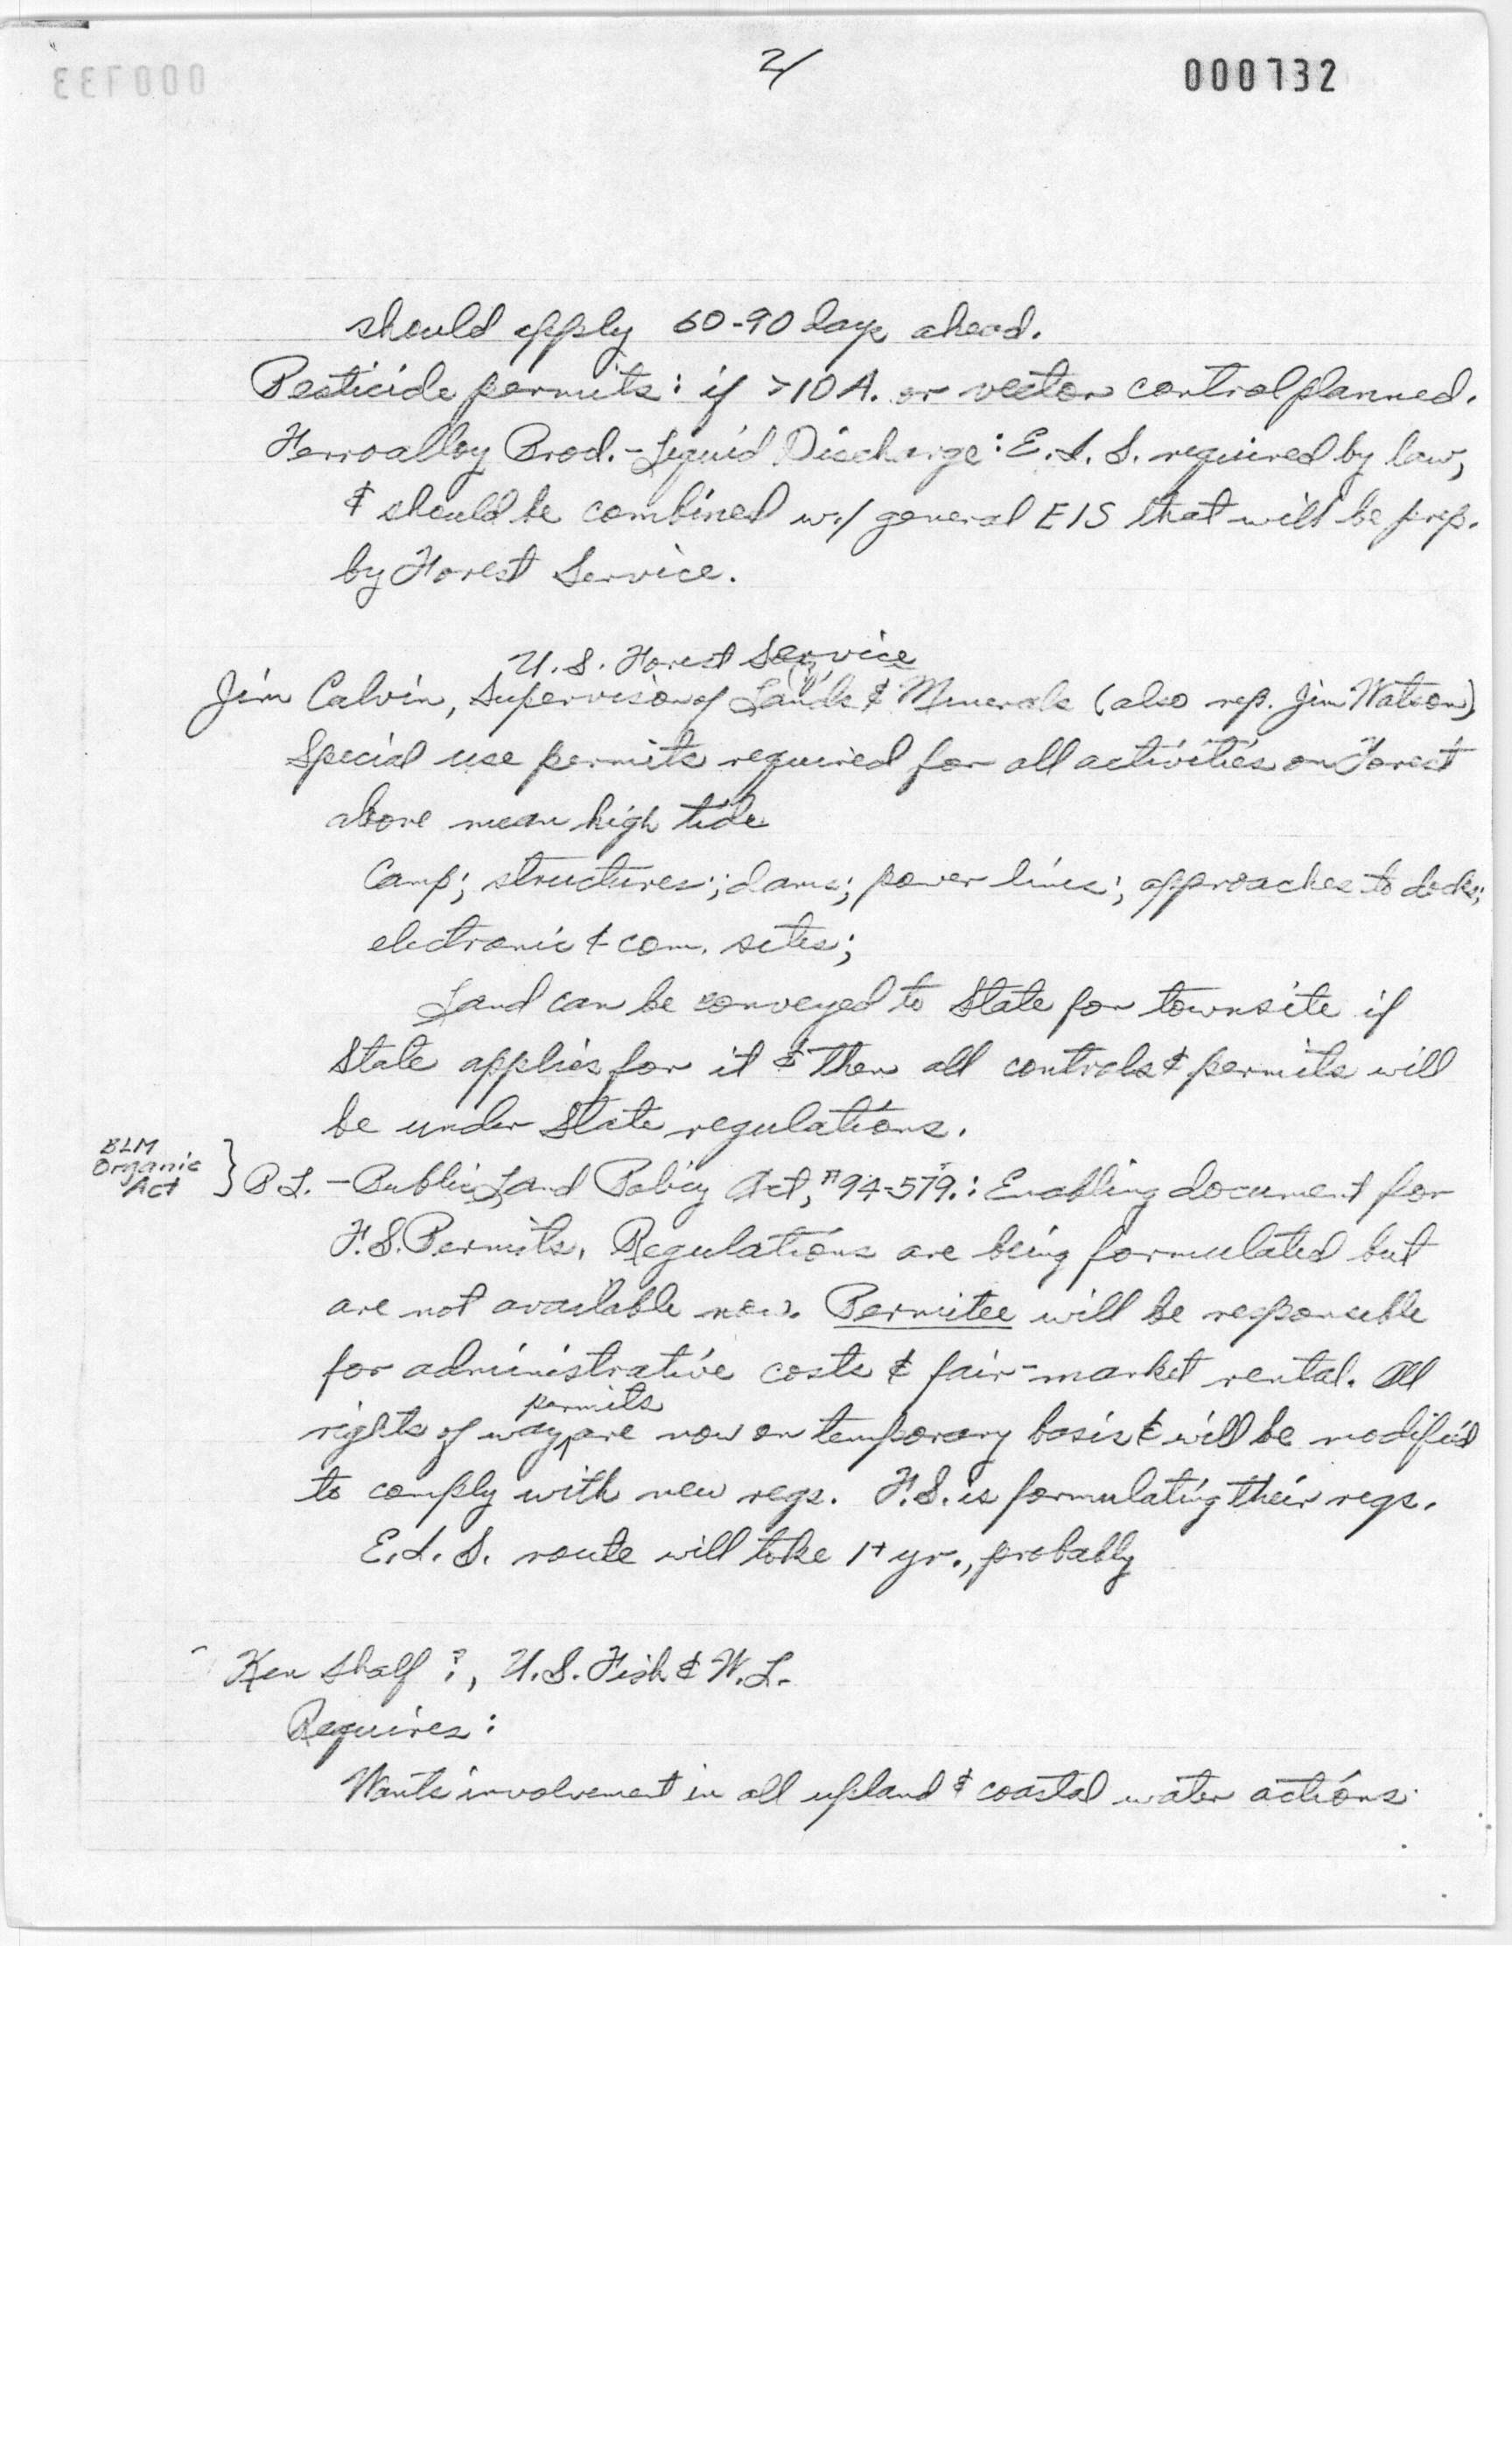 2/
000732
should apply 60-90 days ahead.
Pesticide permits: if >10 A. or vector control planned.
Ferroalloy Prod.-Liquid Discharge: E.I.S. required by law,
& should be combined w/ general EIS that will be prep.
by Forest Service.
U.S. Forest Service
Jim Calvin, Supervisor of Lands & Minerals (also rep. Jim Watson)
Special use permits required for all activities on Forest
above mean high tide
Camp; structures; dams; power lines; approaches to docks;
electronic & com. sites;
Land can be conveyed to State for townsite if
State applies for it & then all controls & permits will
be under State regulations.
BLM
Organic
Act } P L. - Public Land Policy Act, #94-579.: Enabling document for
F.S. Permits. Regulations are being formulated but
are not available now. Permitee will be responsible
for administrative costs & fair-market rental. All
permits
rights of way are now on temporary basis & will be modified
to comply with new regs. F.S. is formulating their regs.
E.I.S. route will take 1+ yr., probably
Ken Shalf ?, U.S. Fish & W.L.
Requires:
Wants involvement in all upland & coastal water actions.